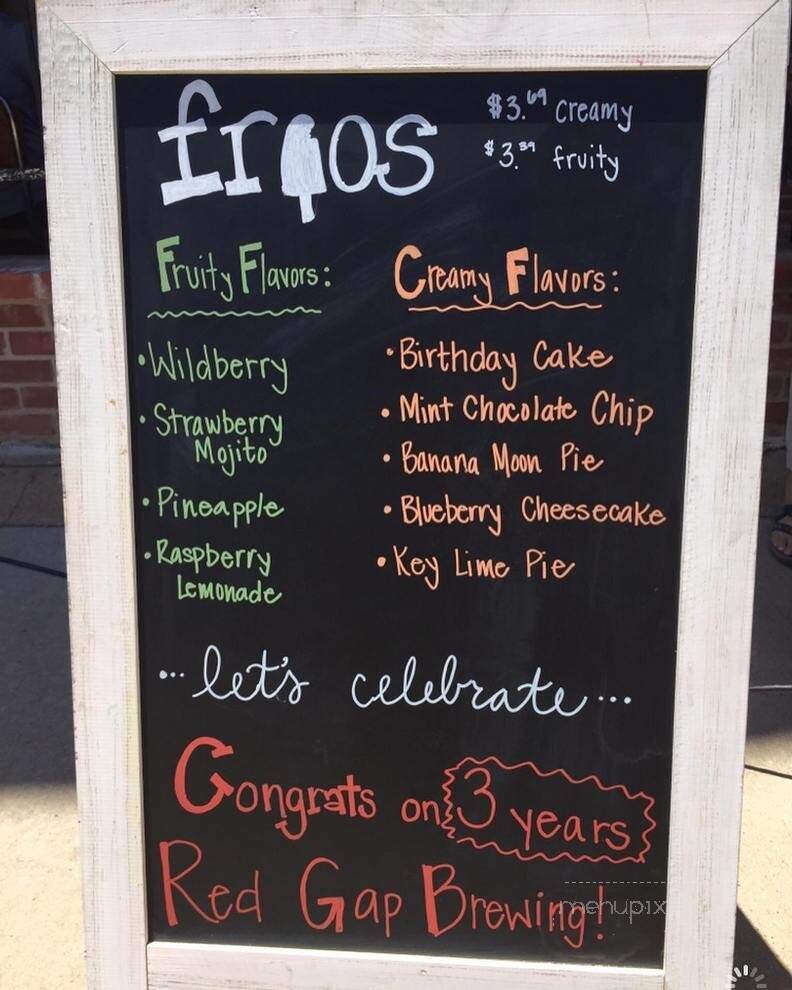 frios
$3.69 creamy
$3.39 fruity
Fruity Flavors:
• Wildberry
• Strawberry
Mojito
• Pineapple
• Raspberry
Lemonade
Creamy Flavors:
• Birthday Cake
• Mint Chocolate Chip
• Banana Moon Pie
• Blueberry Cheesecake
• Key Lime Pie
... let's celebrate ...
Congrats on 3 years
Red Gap Brewing!
menupix